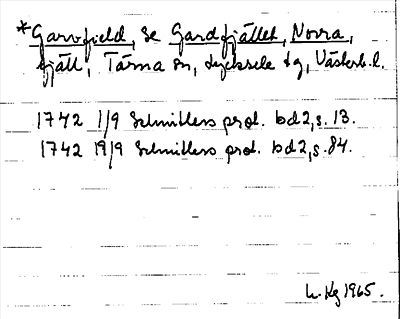 *Garvfield, se Gardfjället, Norra,
fjäll, Tärna sn, Lycksele tg, Västerb. l.
1742 1/9 Schnitlers prot. bd 2, s. 13.
1742 19/9 Schnitlers prot. bd 2, s. 84.
1965.